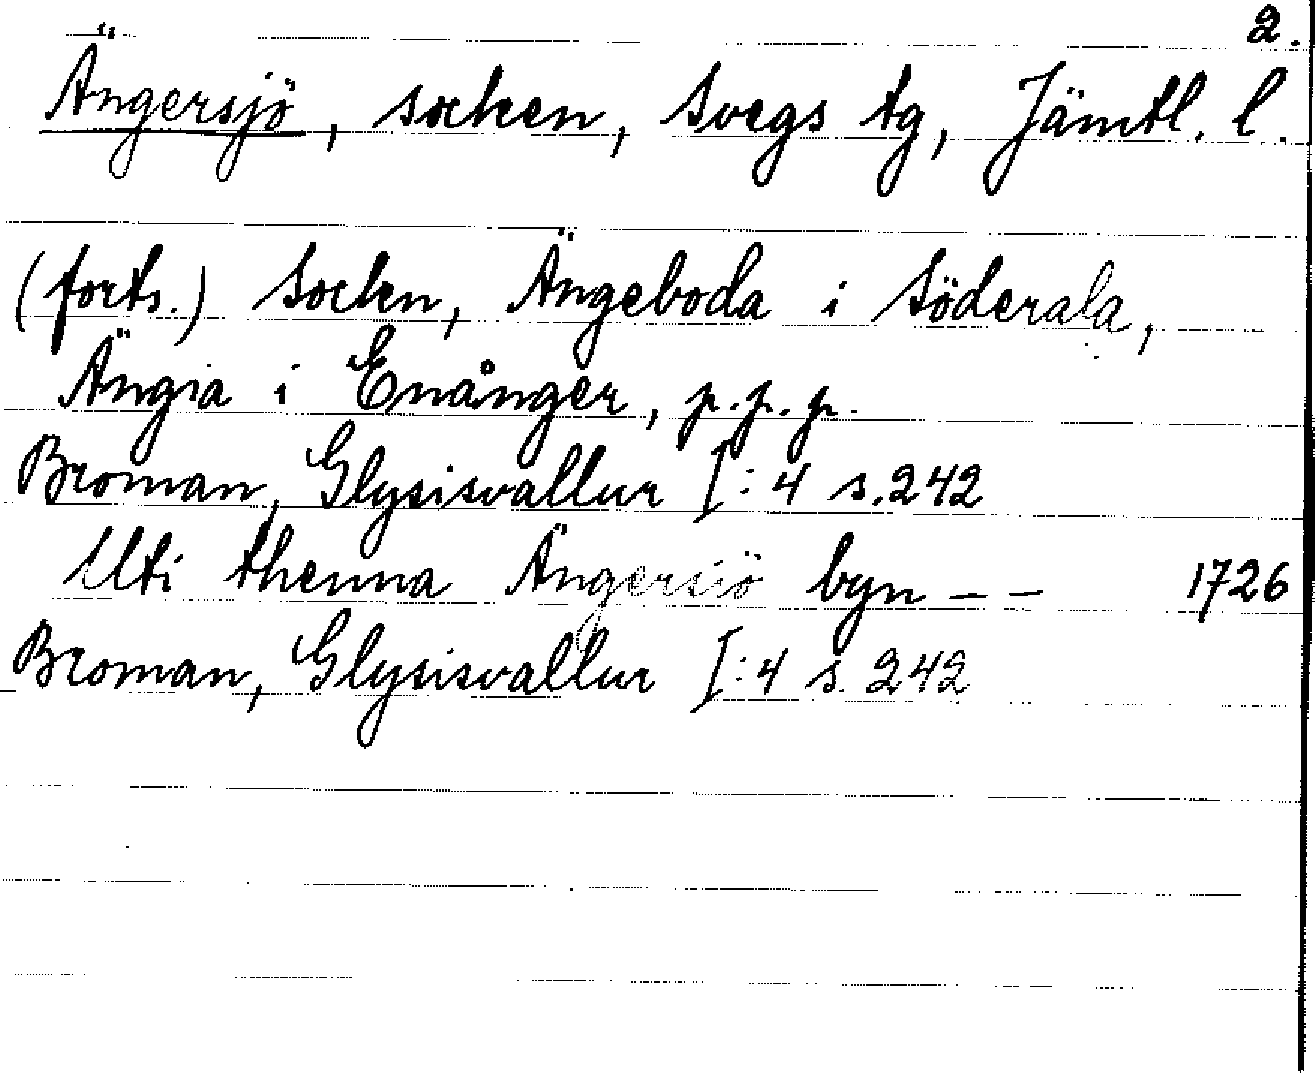 2.
Ängersjö, socken, Svegs tg, Jämtl. l.
(forts.) Socken, Ängeboda i Söderala,
Ängia i Enånger, p.p.p.
Broman, Glysisvallur I:4 s.242
Uti thenna Ängersiö byn – – 1726
Broman, Glysisvallur I:4 s. 242